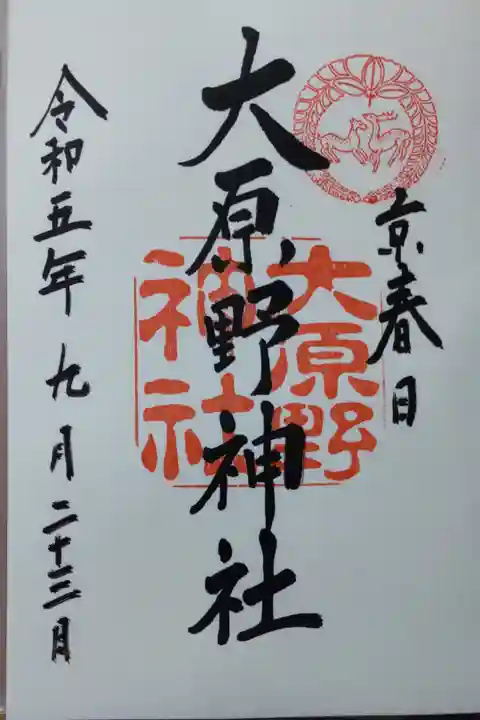 京春日
大原野神社
大原野
神社
令和五年九月二十三日